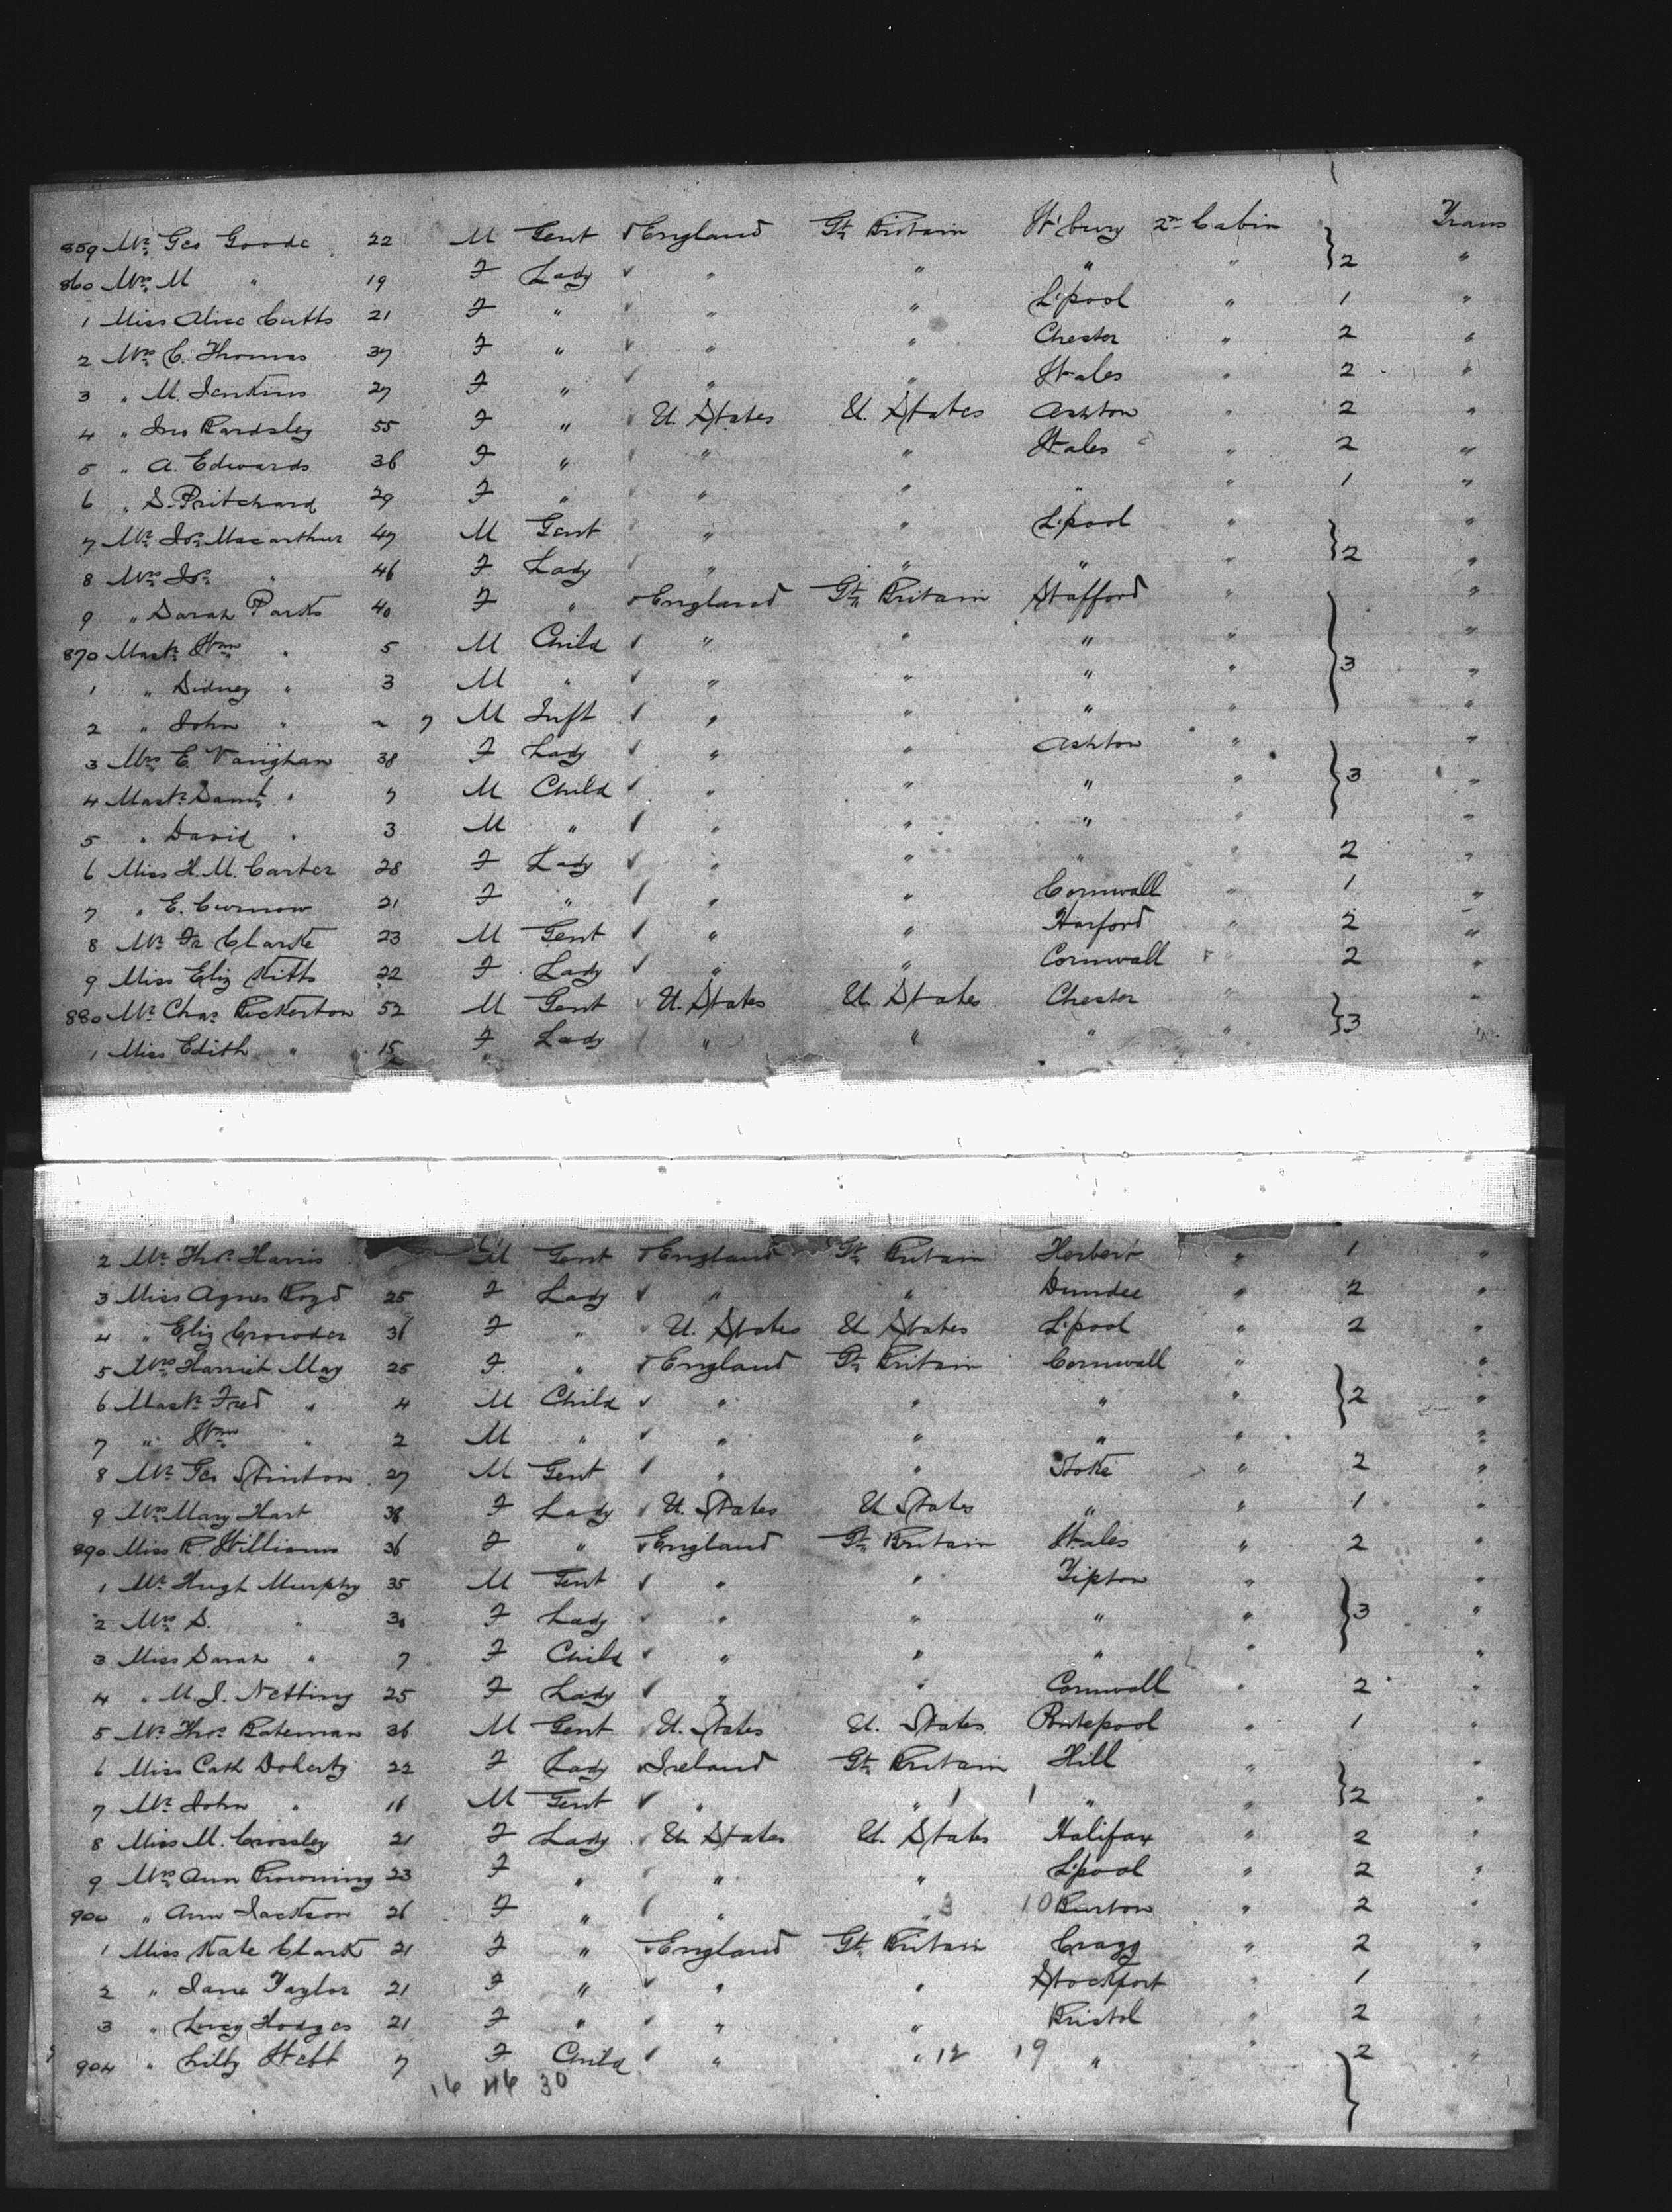 859 Mr. Geo Goode 22 M Gent ✓ England Gt. Britain W'bury 2n Cabin Trans
860 Mrs. M " 19 F Lady ✓ " " " " } 2 "
1 Miss Alice Cutts 21 F " ✓ " " L'pool " 1 "
2 Mrs. C. Thomas 37 F " ✓ " " Chester " 2 "
3 " M. Jenkins 27 F " ✓ " " Wales " 2 "
4 " Jno Bardsley 55 F " U. States U. States Ashton " 2 "
5 " A. Edwards 36 F " " " Wales " 2 "
6 " S. Pritchard 29 F " " " " " 1 "
7 Mr. Jos. Macarthur 47 M Gent " " L'pool " "
8 Mrs. Jos. " 46 F Lady " " " " } 2 "
9 " Sarah Parks 40 F " ✓ England Gt. Britain Stafford " "
870 Mastr. Wm " 5 M Child ✓ " " " " "
1 " Sidney " 3 M " ✓ " " " " } 3 "
2 " John " ~ 7 M Inft ✓ " " " " "
3 Mrs E. Vaughan 38 F Lady ✓ " " Ashton " "
4 Mastr. Saml. " 7 M Child ✓ " " " " } 3 "
5 " David " 3 M " ✓ " " " " "
6 Miss H. M. Carter 28 F Lady ✓ " " " " 2 "
7 " E. Curnow 21 F " ✓ " " Cornwall " 1 "
8 Mr. Fr Clarke 23 M Gent ✓ " " Harford " 2 "
9 Miss Eliz Kitts 22 F Lady ✓ " " Cornwall " 2 "
880 Mr. Chas. Pickerton 52 M Gent ✓ U. States U. States Chester " "
1 Miss Edith " 15 F Lady " " " " } 3 "
2 Mr. Thos. Harris M Gent ✓ England Gt. Britain Herbert " 1 "
3 Miss Agnes Boyd 25 F Lady ✓ " " Dundee " 2 "
4 " Eliz Crowder 31 F " U. States U States L'pool " 2 "
5 Mrs. Harriet May 25 F " ✓ England Gt. Britain Cornwall " "
6 Mastr. Fred " 4 M Child ✓ " " " " } 2 "
7 " Wm " 2 M " ✓ " " " " "
8 Mr. Geo Stinton 27 M Gent ✓ " " Stoke " 2 "
9 Mrs. Mary Hart 38 F Lady ✓ U. States U States " " 1 "
890 Miss R. Williams 36 F " ✓ England Gt. Britain Wales " 2 "
1 Mr. Hugh Murphy 35 M Gent ✓ " " Tipton " "
2 Mrs. S. " 30 F Lady ✓ " " " " } 3 "
3 Miss Sarah " 7 F Child ✓ " " " " "
4 " M. J. Netting 25 F Lady ✓ " " Cornwall " 2 "
5 Mr. Thos. Bateman 36 M Gent ✓ U. States U. States Pontepool " 1 "
6 Miss Cath Doherty 22 F Lady ✓ Ireland Gt. Britain Hill " "
7 Mr. John " 16 M Gent ✓ " " 1 1 " " } 2 "
8 Miss M. Crossley 21 F Lady ✓ U. States U. States Halifax " 2 "
9 Mrs. Ann Browning 23 F " " " L'pool " 2 "
900 " Ann Jackson 26 F " " " 3 10 Burton " 2 "
1 Miss Kate Clark 21 F " ✓ England Gt. Britain Cragg " 2 "
2 " Jane Taylor 21 F " ✓ " " Stockport " 1 "
3 " Lucy Hodges 21 F " ✓ " " Bristol " 2 "
904 " Lilly Webb 7 F Child ✓ " " 12 19 " " 2 "
16 46 30